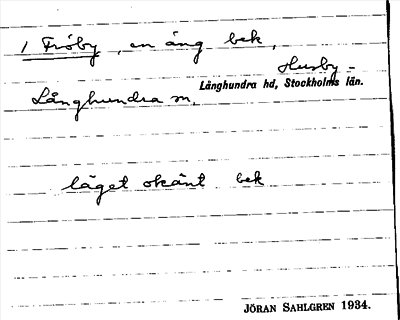 1 Fröby, en äng bek,
Husby-
Långhundra hd, Stockholms län.
Långhundra sn.
läget okänt bek
JÖRAN SAHLGREN 1934.